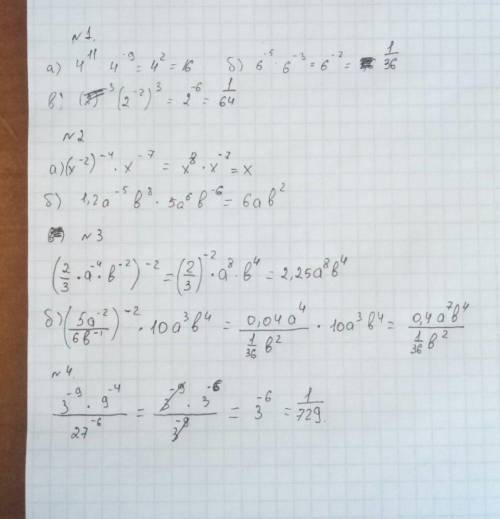 №1.
а) 4^11 · 4^-9 = 4^2 = 16 б) 6^-5 · 6^-3 = 6^-2 = 1/36
в) (2^-2)^3 = 2^-6 = 1/64
№2
а) (x^-2)^-4 · x^-7 = x^8 · x^-7 = x
б) 1,2a^-5 b^8 · 5a^6 b^-6 = 6ab^2
№3
(2/3 · a^-4 · b^-2)^-2 = (2/3)^-2 · a^8 · b^4 = 2,25a^8b^4
б) (5a^-2/6b^-1)^-2 · 10a^3b^4 = 0,04a^4/(1/36 b^2) · 10a^3b^4 = 0,4a^7b^4/(1/36 b^2)
№4
3^-9 · 9^-4/27^-6 = 3^-9 · 3^-6/3^-9 = 3^-6 = 1/729.